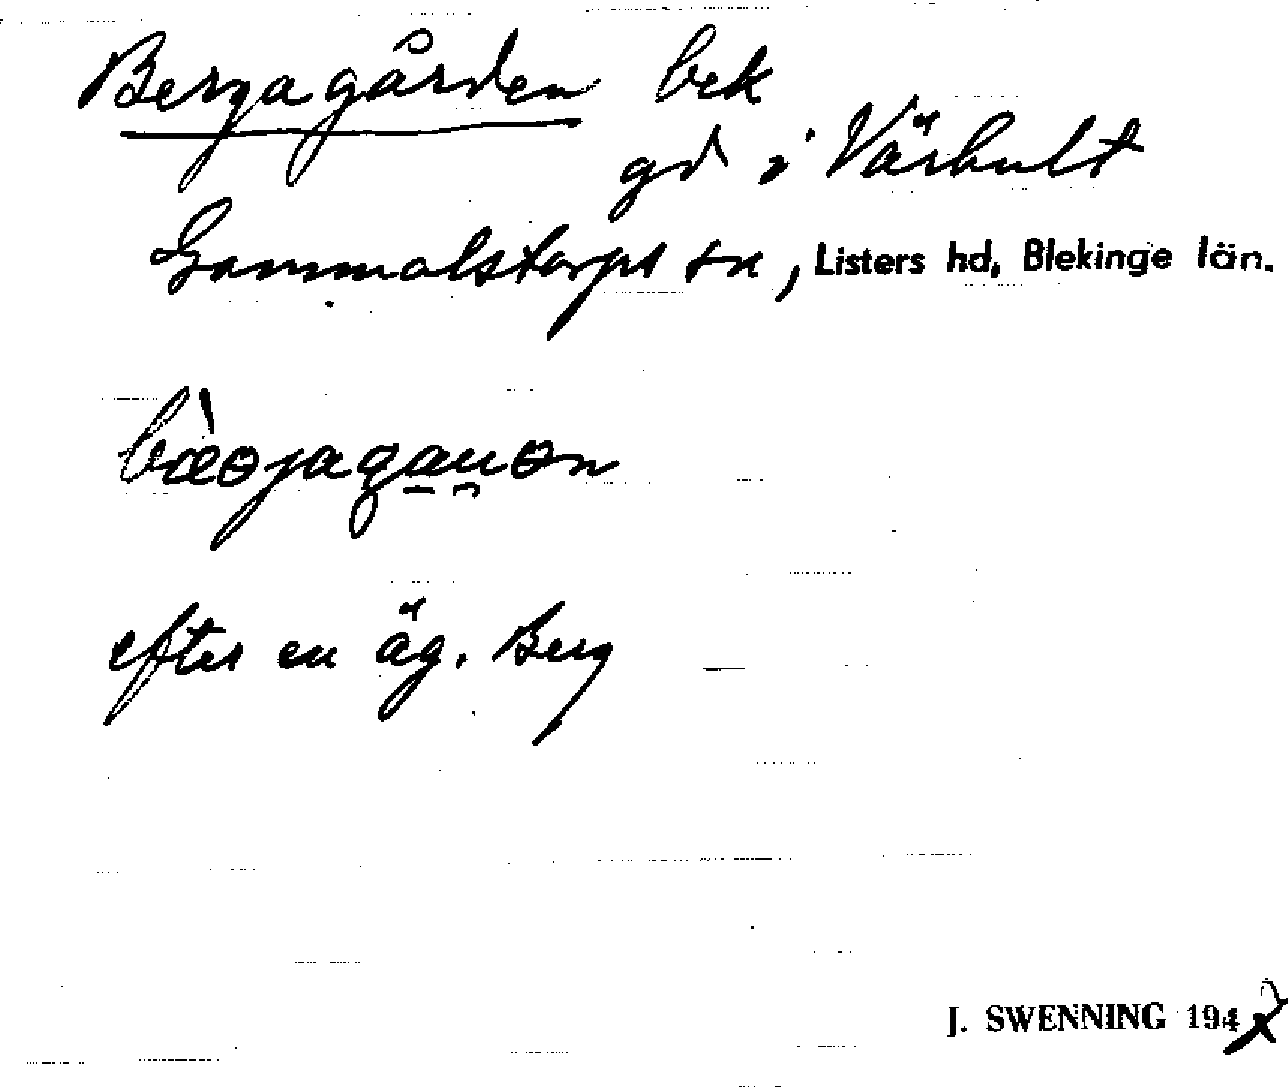 Bergagården bek
gd i Värhult
Gammalstorps sn, Listers hd, Blekinge län.
efter en äg. Berg
J. SWENNING 194